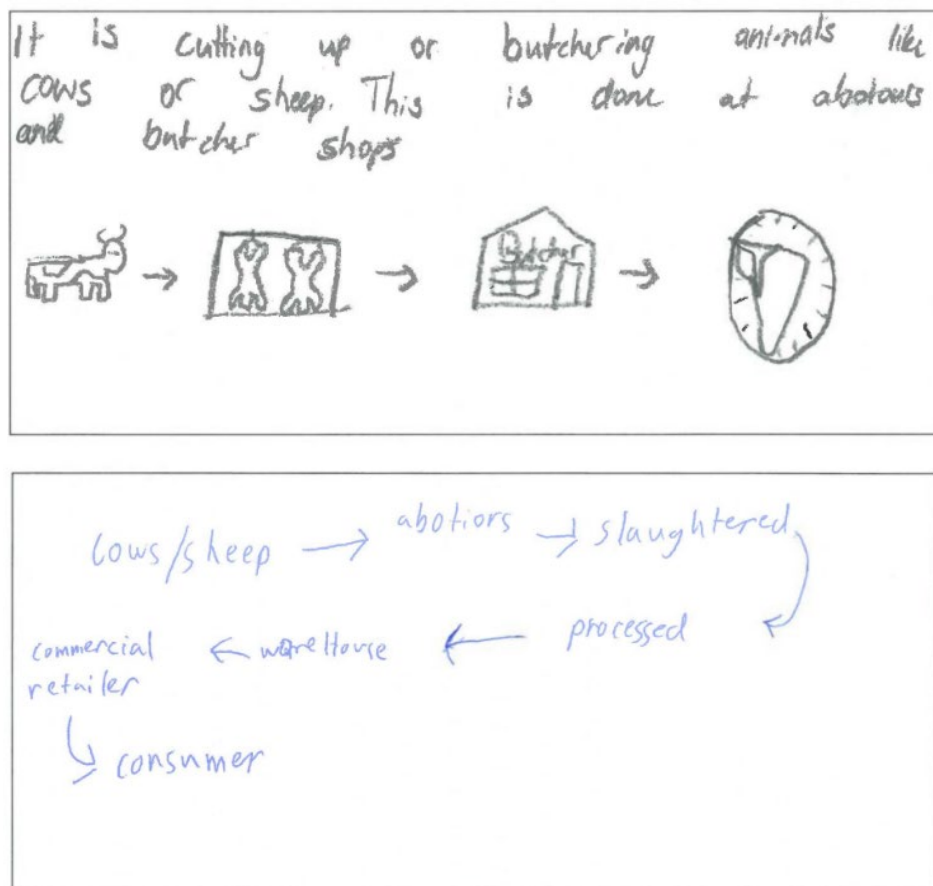 It is cutting up or butchering animals like
cows or sheep. This is done at abotours
and butcher shops
Butcher
cows/sheep → abotiors → slaughtered
commercial ← wareHouse ← processed
retailer
consumer